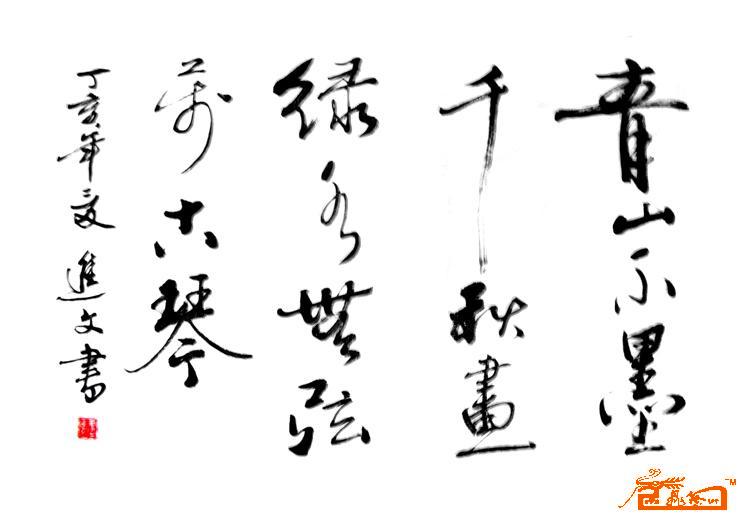 青山不墨
千秋畫
綠水無弦
萬古琴
丁亥年夏進文書